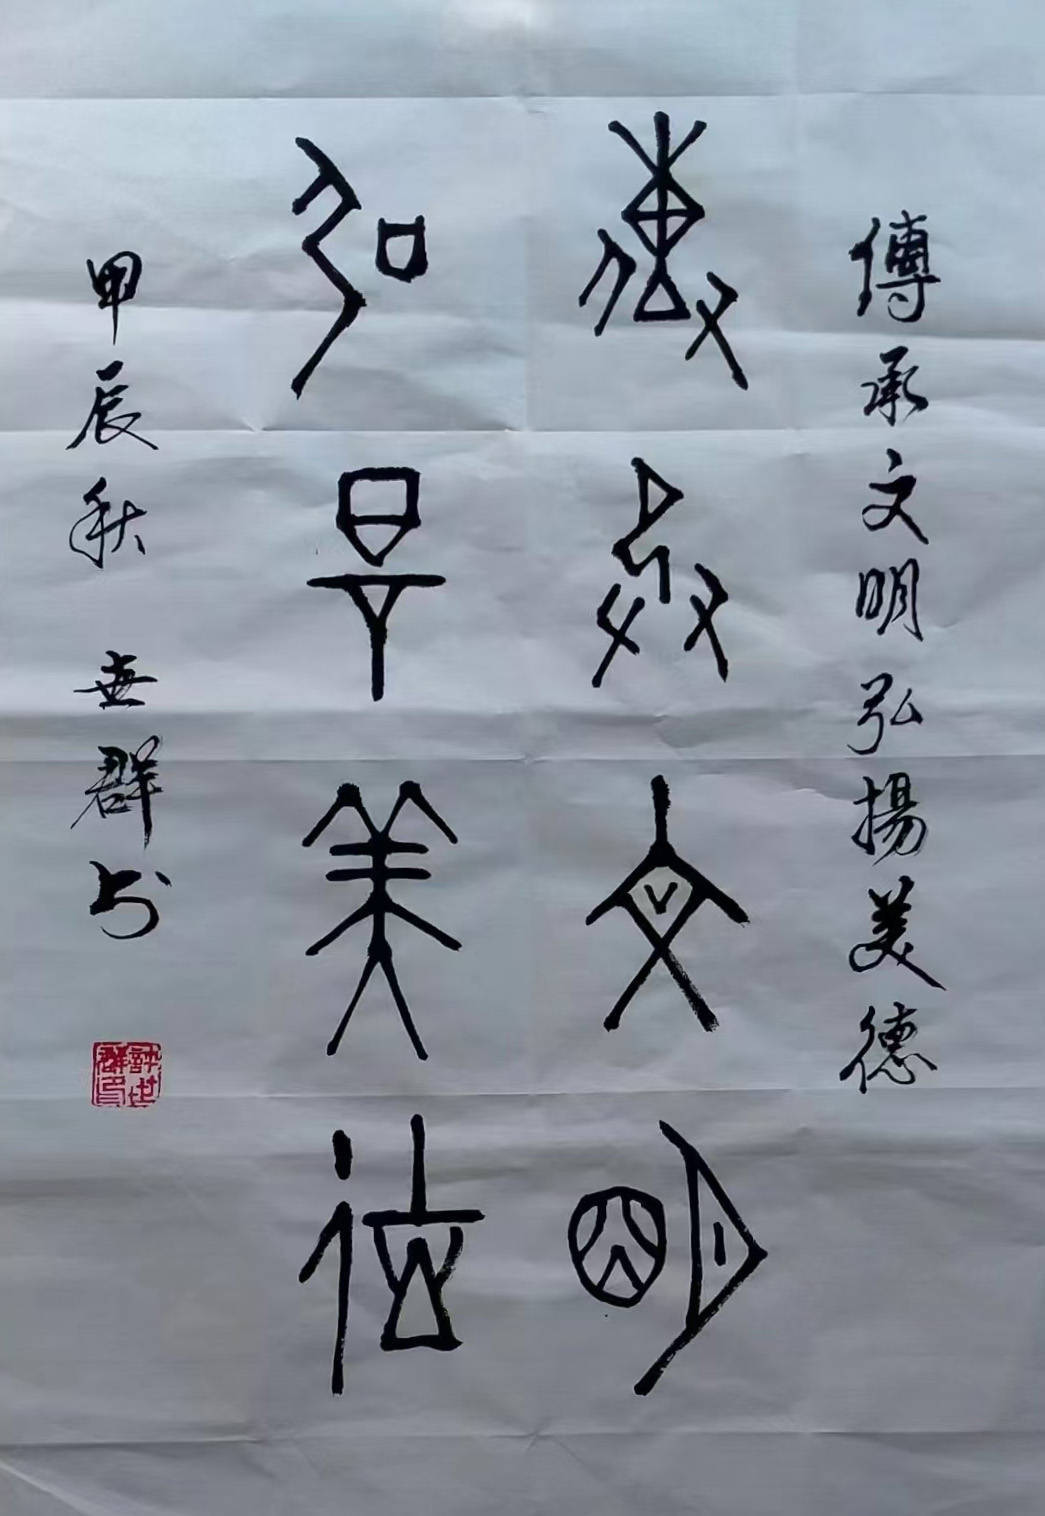 傳承文明弘揚美德
傳承文明
弘揚美德
甲辰秋 世群书
許世群印